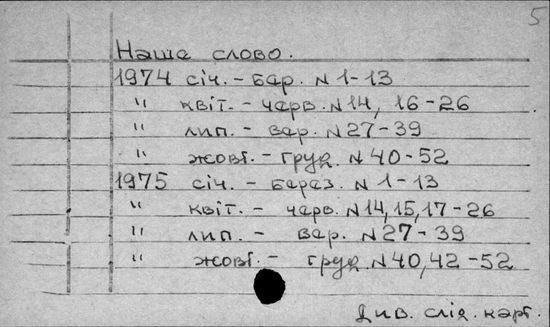 5
Наше слово.
1974 січ. - бер. N 1-13
" квіт. - черв. N 14, 16-26
" лип. - вер. N 27-39
" жовт. - груд. N 40-52
1975 січ. - берез. N 1-13
" квіт. - черв. N 14, 15, 17-26
" лип. - вер. N 27-39
" жовт. - груд. N 40, 42-52
Див. слід. карт.